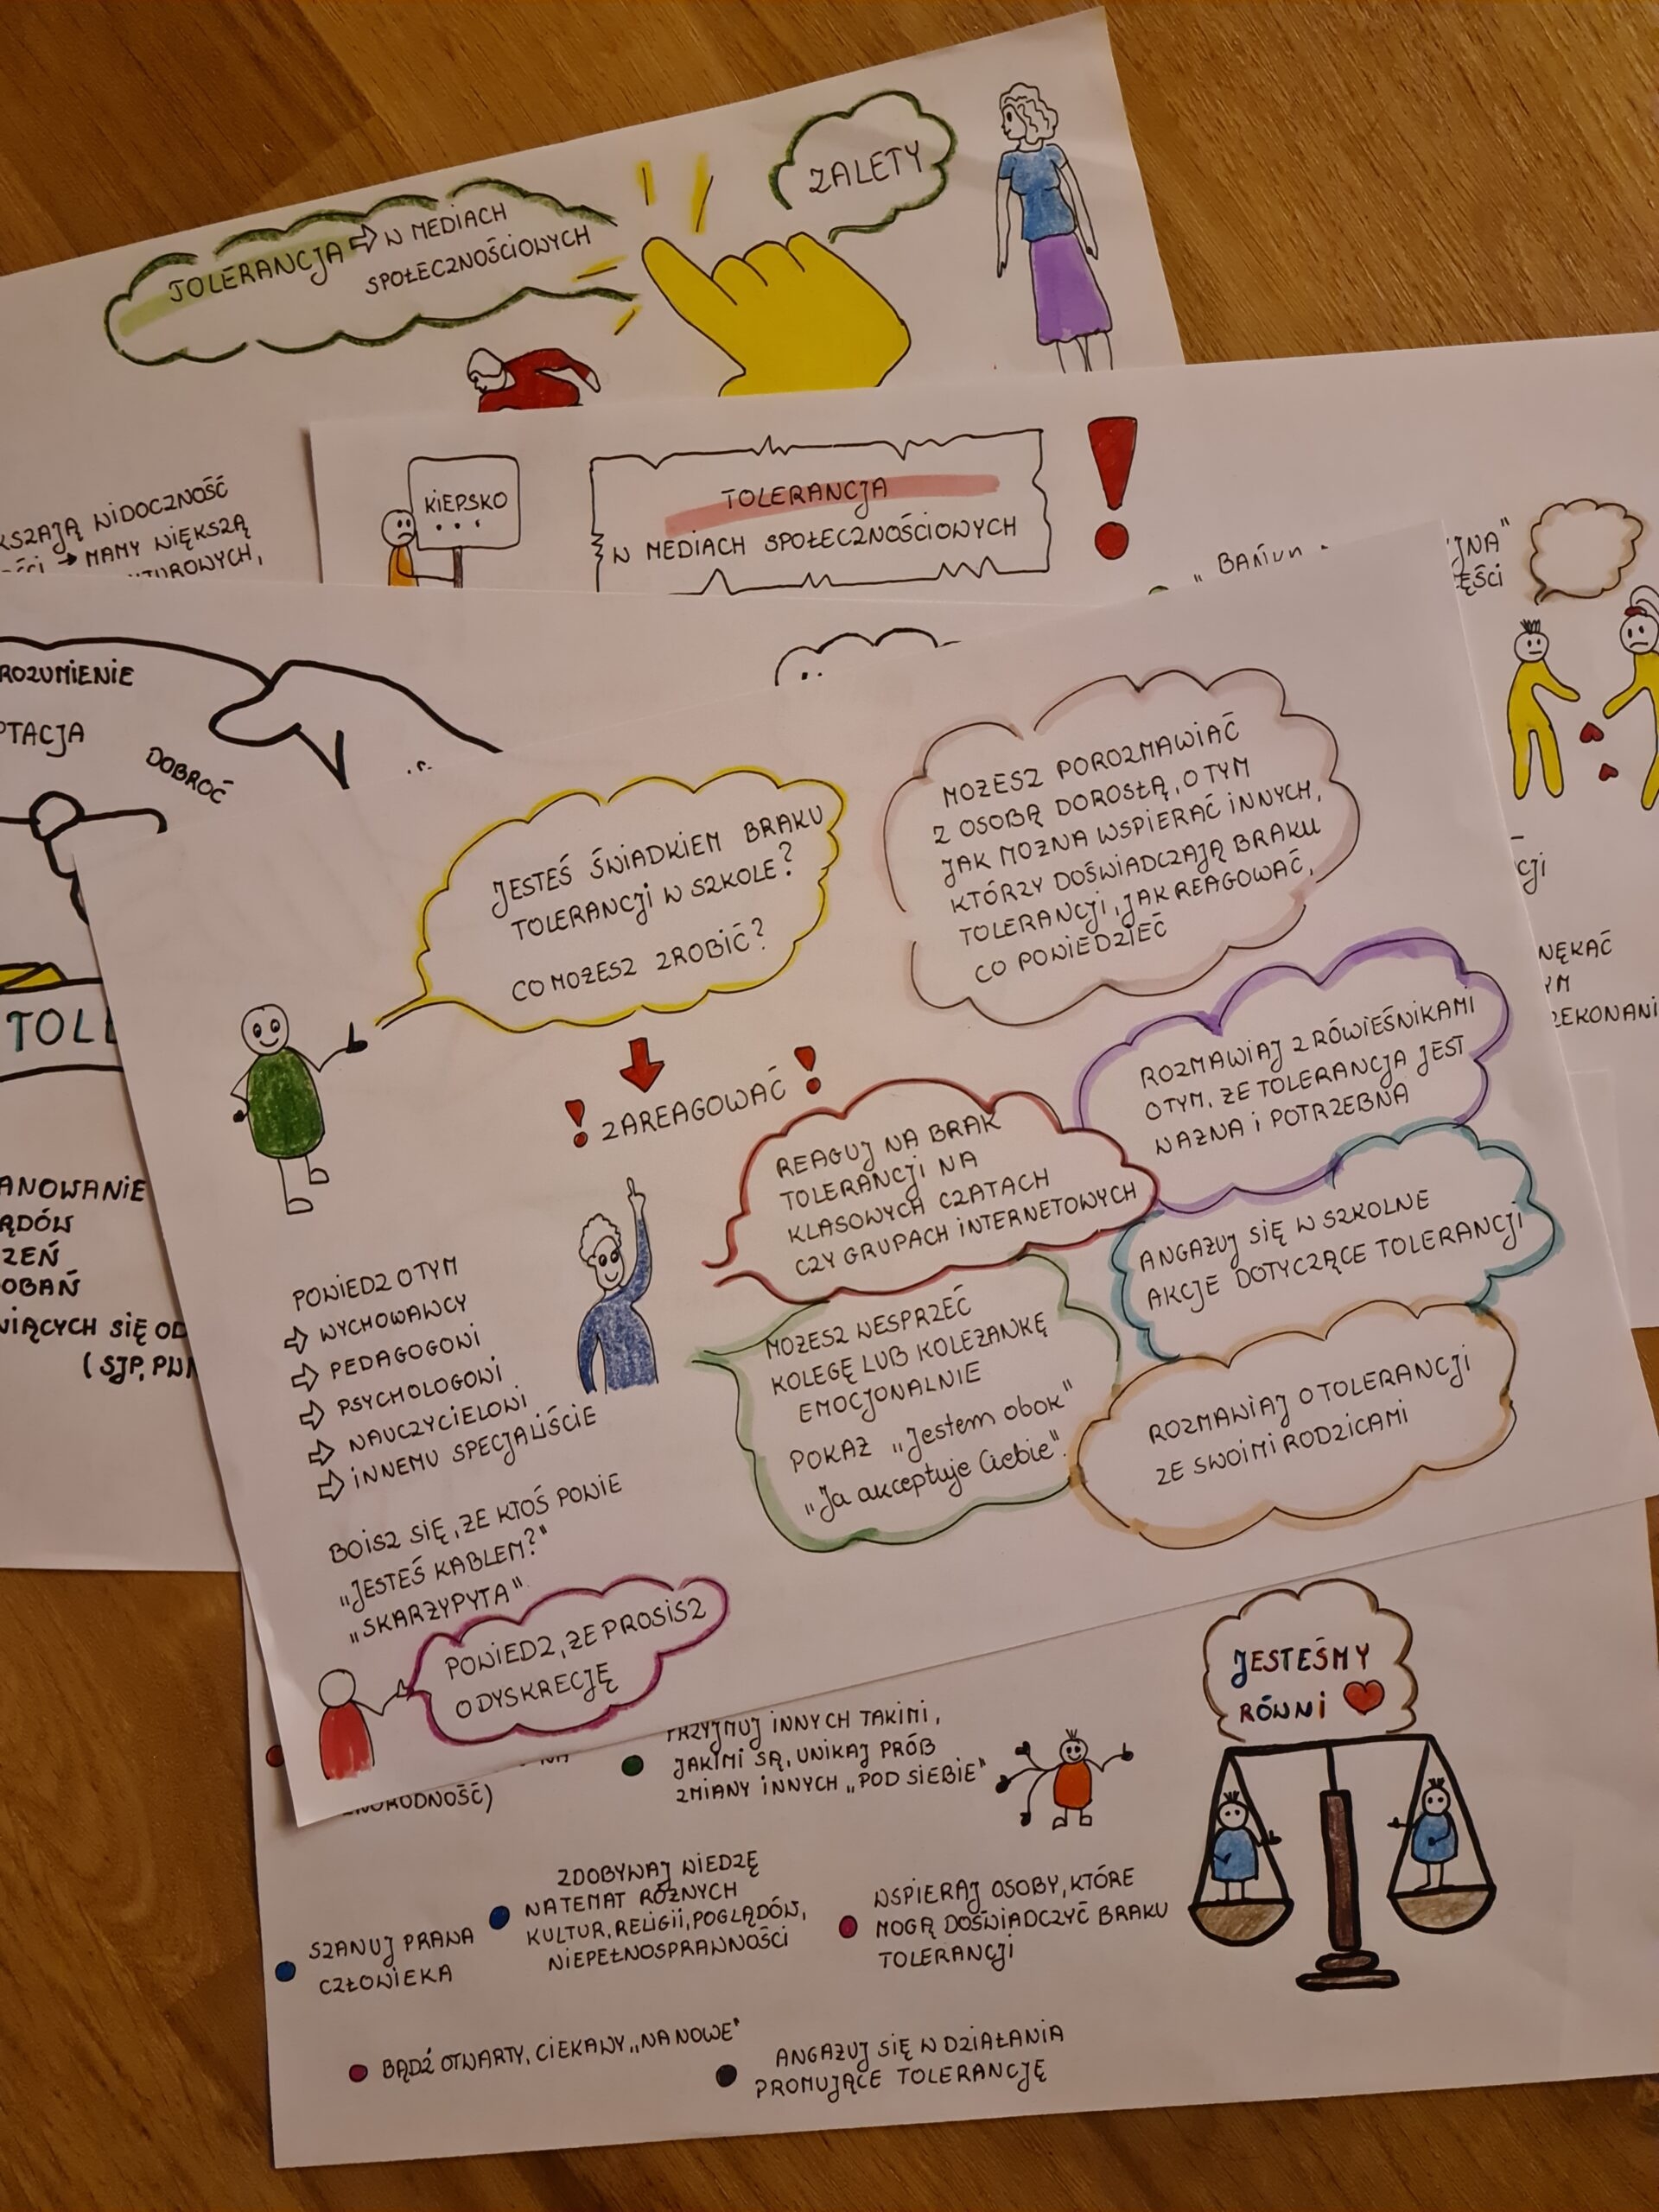 TOLERANCJA ⇨ W MEDIACH
SPOŁECZNOŚCIOWYCH
ZALETY
KSZAJĄ WIDOCZNOŚĆ
MAMY WIĘKSZĄ
KIEPSKO
...
TOLERANCJA
W MEDIACH SPOŁECZNOŚCIOWYCH
ROZUMIENIE
PTACJA
DOBROĆ
TOL
ANOWANIE
ĄDÓW
ZEŃ
OBAŃ
WIĄCYCH SIĘ OD
(SJP, PWN
NĘKAĆ
YM
ZEKONANI
JESTEŚ ŚWIADKIEM BRAKU
TOLERANCJI W SZKOLE?
CO MOŻESZ ZROBIĆ?
! ZAREAGOWAĆ !
POWIEDZ O TYM
⇨ WYCHOWAWCY
⇨ PEDAGOGOWI
⇨ PSYCHOLOGOWI
⇨ NAUCZYCIELOWI
⇨ INNEMU SPECJALIŚCIE
BOISZ SIĘ, ŻE KTOŚ POWIE
„JESTEŚ KABLEM?"
„SKARŻYPYTA".
POWIEDZ, ŻE PROSISZ
O DYSKRECJĘ
MOŻESZ POROZMAWIAĆ
Z OSOBĄ DOROSŁĄ, O TYM
JAK MOŻNA WSPIERAĆ INNYCH,
KTÓRZY DOŚWIADCZAJĄ BRAKU
TOLERANCJI, JAK REAGOWAĆ,
CO POWIEDZIEĆ
ROZMAWIAJ Z RÓWIEŚNIKAMI
O TYM, ŻE TOLERANCJA JEST
WAŻNA i POTRZEBNA
REAGUJ NA BRAK
TOLERANCJI NA
KLASOWYCH CZATACH
CZY GRUPACH INTERNETOWYCH
ANGAŻUJ SIĘ W SZKOLNE
AKCJE DOTYCZĄCE TOLERANCJI
MOŻESZ WESPRZEĆ
KOLEGĘ LUB KOLEŻANKĘ
EMOCJONALNIE
POKAŻ „Jestem obok"
„Ja akceptuje Ciebie".
ROZMAWIAJ O TOLERANCJI
ZE SWOIMI RODZICAMI
PRZYJMUJ INNYCH TAKIMI,
JAKIMI SĄ, UNIKAJ PRÓB
ZMIANY INNYCH „POD SIEBIE"
JESTEŚMY
RÓWNI
SZANUJ PRAWA
CZŁOWIEKA
ZDOBYWAJ WIEDZĘ
NA TEMAT RÓŻNYCH
KULTUR, RELIGII, POGLĄDÓW,
NIEPEŁNOSPRAWNOŚCI
WSPIERAJ OSOBY, KTÓRE
MOGĄ DOŚWIADCZYĆ BRAKU
TOLERANCJI
BĄDŹ OTWARTY, CIEKAWY „NA NOWE"
ANGAŻUJ SIĘ W DZIAŁANIA
PROMUJĄCE TOLERANCJĘ